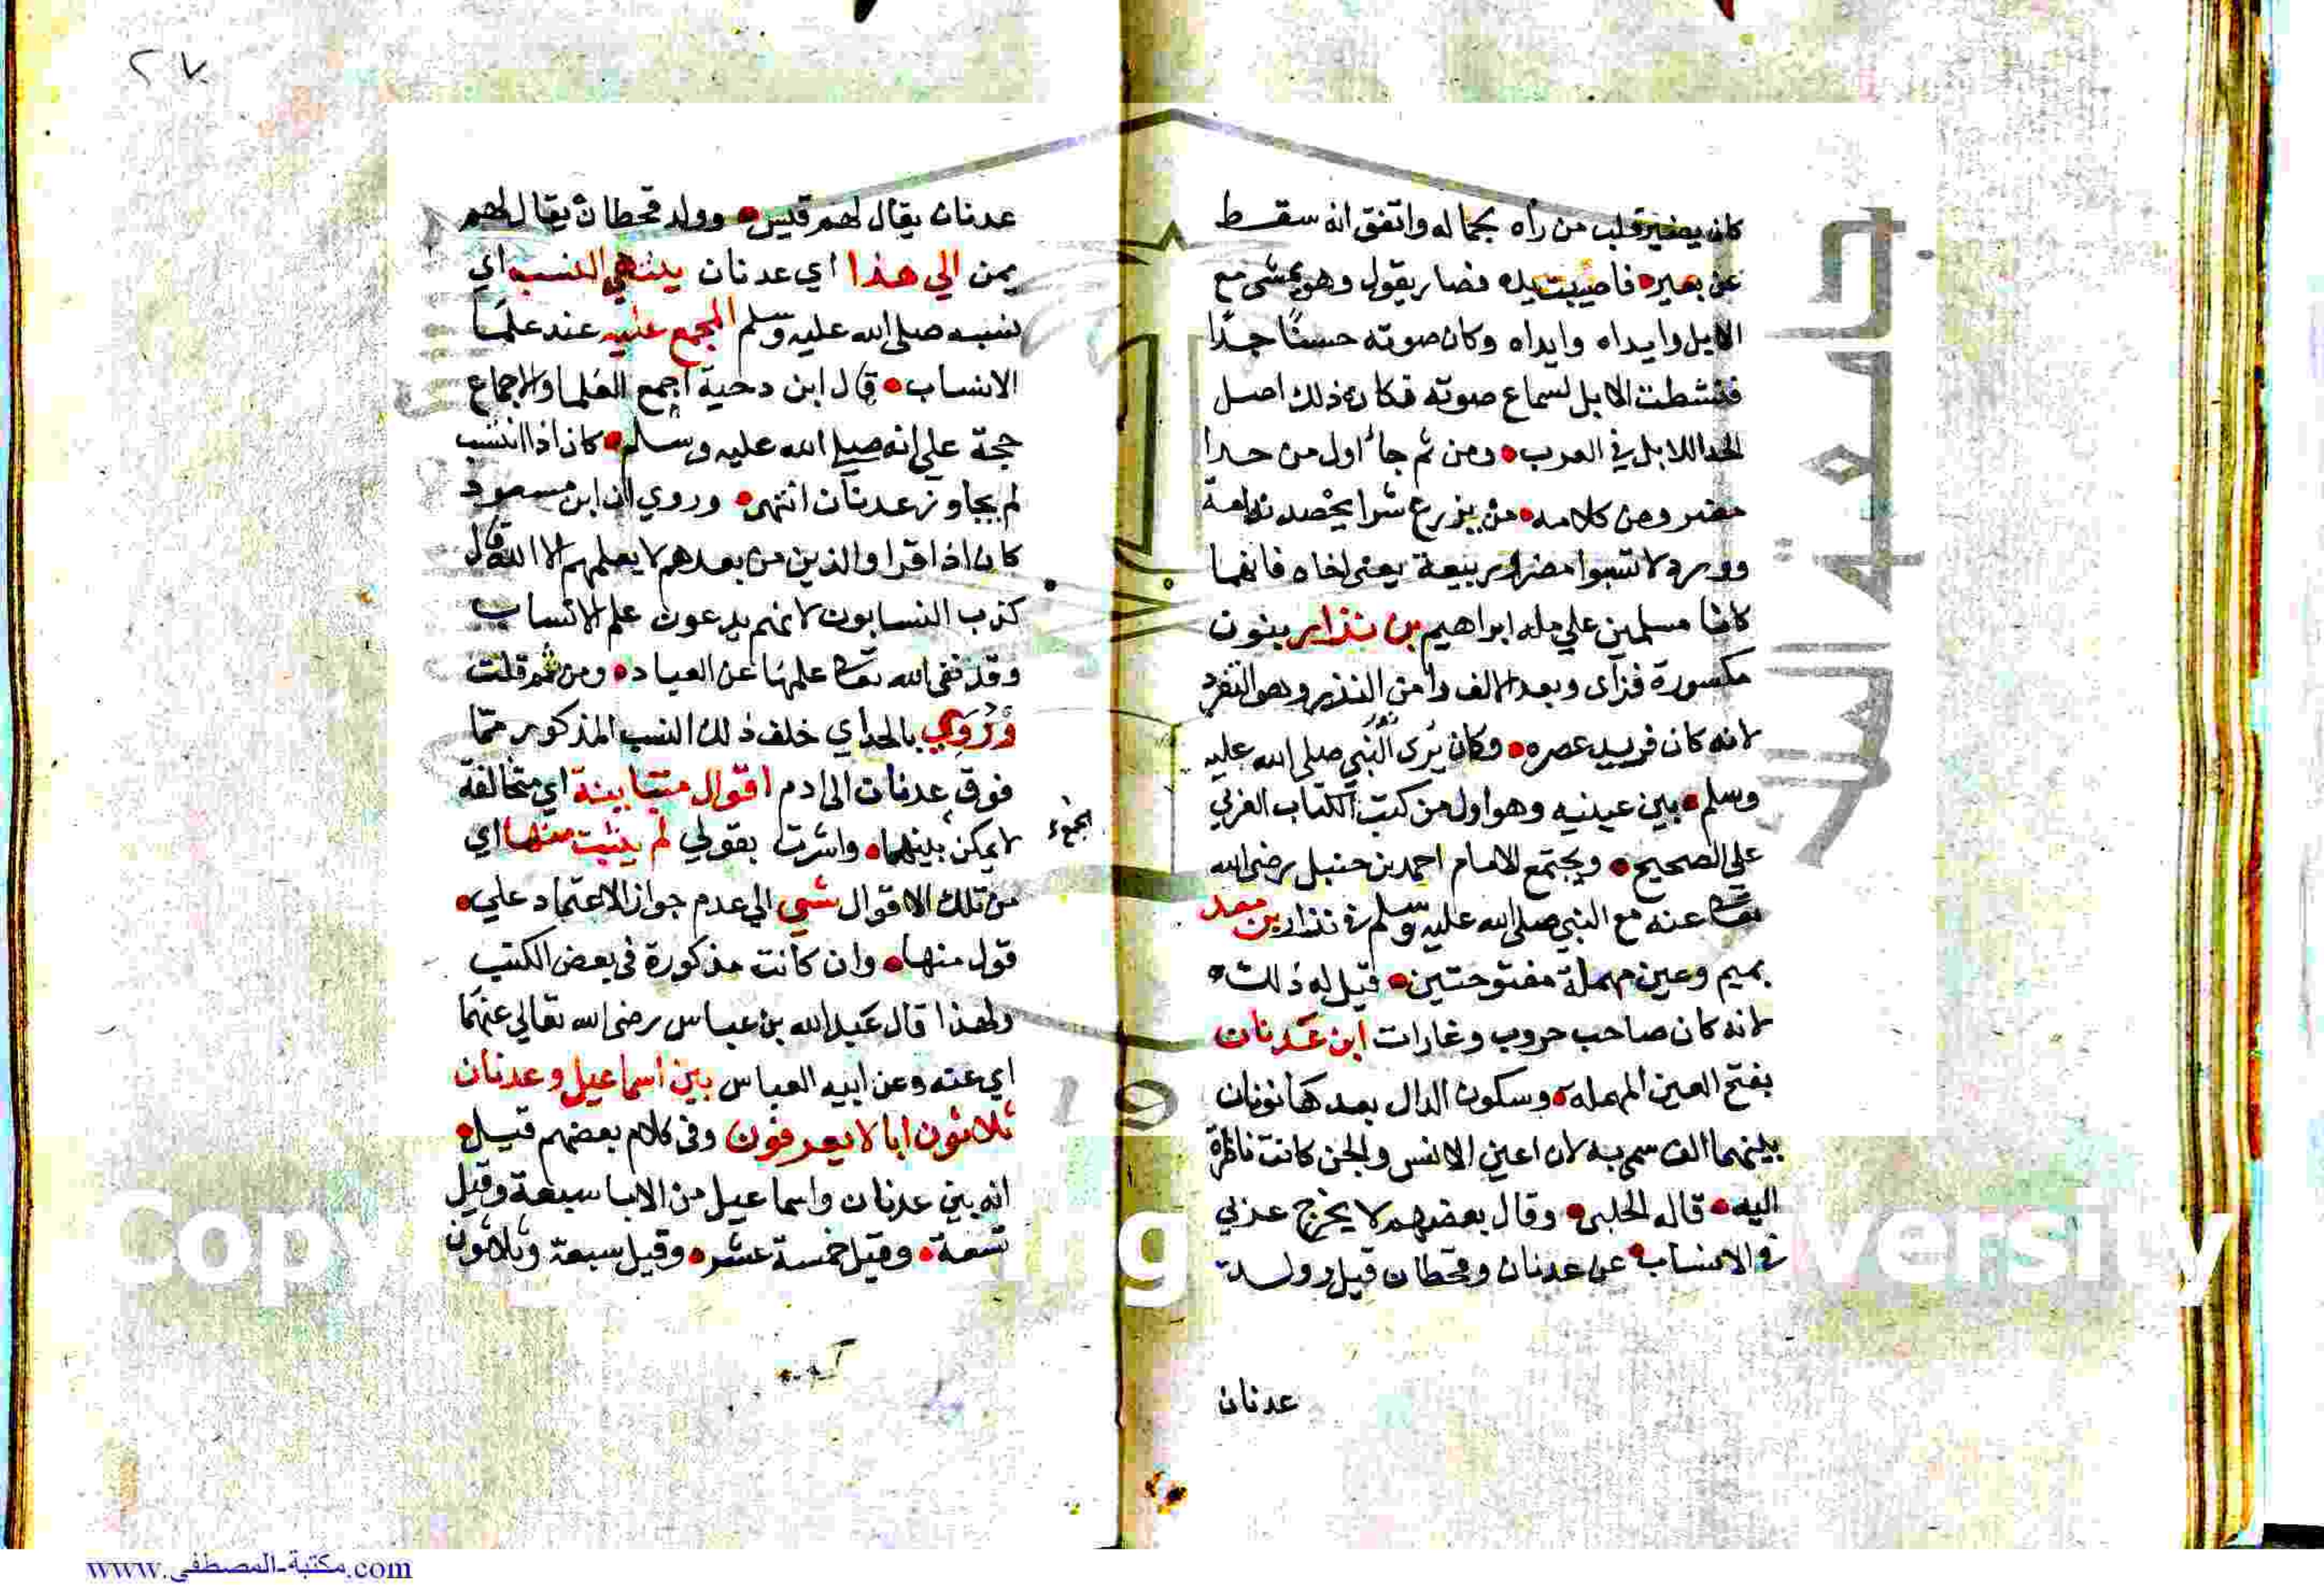 كان يضير قلب من رأه بجماله واتفق انه سقط
عن بعيره فاصيبت يده فصار يقول وهو يمشى مع
الابل وايداه وايداه وكان صوته حسنا جدا
فنشطت الابل لسماع صوته فكان ذلك اصل
الحدا للابل في العرب ومن ثم جا اول من حدا
مضر ومن كلامه من يزرع شرا يحصد ندامة
وورد لا تسبوا مضر وربيعة يعنى اخاه فانهما
كانا مسلمين علي مله ابراهيم بن نزار بنون
مكسورة فزآى وبعد الالف را من النذر وهو التفرد
لانه كان فريد عصره وكان يرى نور النبي صلى الله عليه
وسلم بين عينيه وهو اول من كتب الكتاب العربي
علي الصحيح ويجتمع الامام احمد بن حنبل رضى الله
تعالى عنه مع النبي صلى الله عليه وسلم في نزار بن معد
بميم وعين مهملة مفتوحتين قيل له ذلك
لانه كان صاحب حروب وغارات ابن عدنان
بفتح العين المهمله وسكون الدال بعدها نونان
بينهما الف سمى به لان اعين الانس والجن كانت ناظرة
اليه قاله الحلبى وقال بعضهم لا يخرج عربي
في الانساب عن عدنان وقحطان قيل وولد
عدنان
٢٧
عدنان يقال لهم قيس وولد قحطان يقال لهم
يمن الي هذا اي عدنان ينتهي النسب اي
نسبه صلى الله عليه وسلم المجمع عليه عند علما
الانساب قال ابن دحية اجمع العلما والاجماع
حجة علي انه صلى الله عليه وسلم كان اذا انتسب
لم يجاوز عدنان انتهى وروي ان ابن مسعود
كان اذا قرا والذين من بعدهم لا يعلمهم الا الله قال
كذب النسابون لانهم يدعون علم الانساب
وقد نفى الله تعالى علمها عن العباد ومن ثم قلت
وروي بالحداي خلف ذلك النسب المذكور مما
فوق عدنان الى ادم اقوال متباينة اي متخالفة
لا يمكن بينهما واشرت بقولي لم يثبت منها اي
الجمع
من تلك الاقوال شي الي عدم جواز الاعتماد علي
قول منها وان كانت مذكورة في بعض الكتب
ولهذا قال عبد الله بن عباس رضى الله تعالي عنهما
اي عنه وعن ابيه العباس بين اسماعيل وعدنان
ثلاثون ابا لا يعرفون وفى كلام بعضهم قيل
انه بين عدنان واسماعيل من الابا سبعة وقيل
تسعة وقيل خمسة عشر وقيل سبعة وثلاثون
جامعة الملك
Copy g versity
www.مكتبة-المصطفى.com